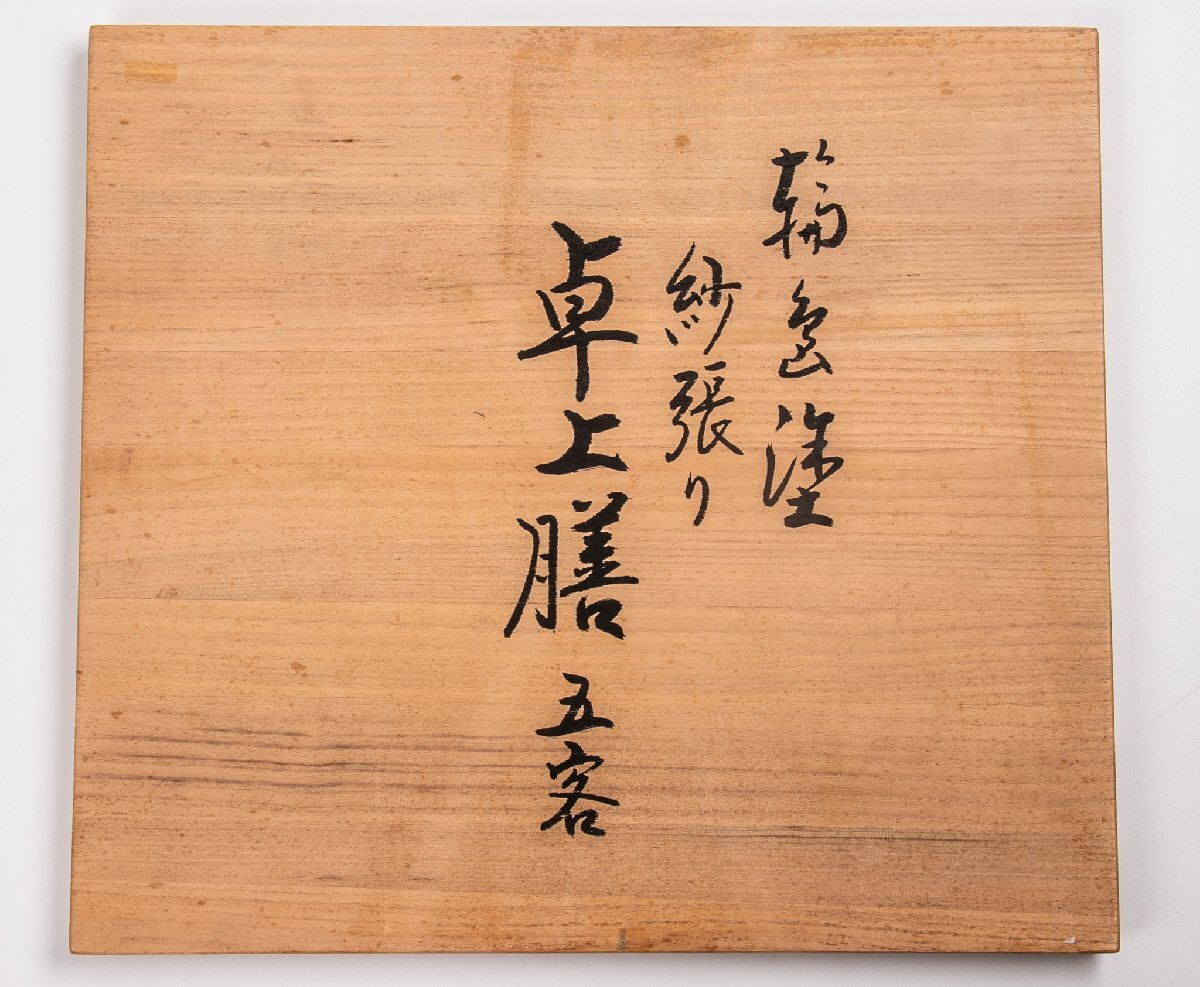 輪島塗
紗張り
卓上膳 五客